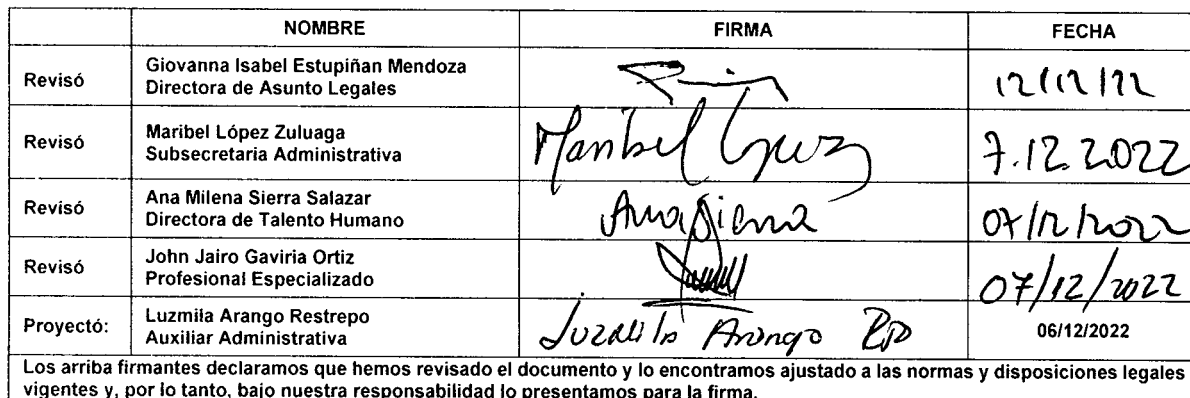 NOMBRE FIRMA FECHA
Revisó Giovanna Isabel Estupiñan Mendoza
Directora de Asunto Legales 12/12/22
Revisó Maribel López Zuluaga
Subsecretaria Administrativa Maribel López 7.12.2022
Revisó Ana Milena Sierra Salazar
Directora de Talento Humano Ana Sierra 07/12/2022
Revisó John Jairo Gaviria Ortiz
Profesional Especializado 07/12/2022
Proyectó: Luzmila Arango Restrepo
Auxiliar Administrativa Luzmila Arango 06/12/2022
Los arriba firmantes declaramos que hemos revisado el documento y lo encontramos ajustado a las normas y disposiciones legales
vigentes y, por lo tanto, bajo nuestra responsabilidad lo presentamos para la firma.